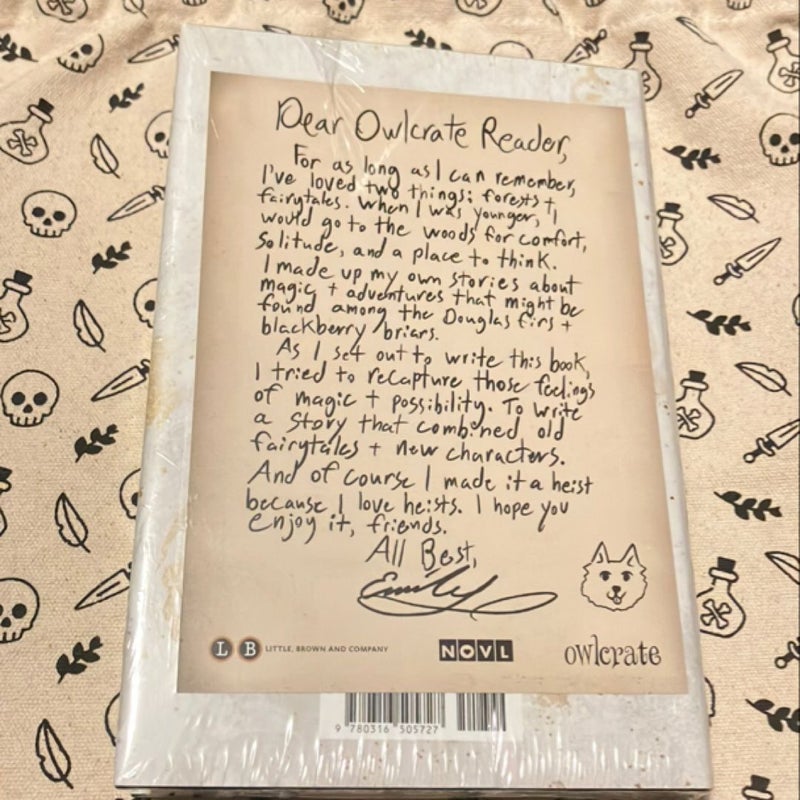 Dear Owlcrate Reader,
For as long as I can remember,
I've loved two things: forests +
fairytales. When I was younger, I
would go to the woods for comfort,
solitude, and a place to think.
I made up my own stories about
magic + adventures that might be
found among the Douglas firs +
blackberry briars.
As I set out to write this book,
I tried to recapture those feelings
of magic + possibility. To write
a story that combined old
fairytales + new characters.
And of course I made it a heist
because I love heists. I hope you
enjoy it, friends.
All Best,
Emily
L B LITTLE, BROWN AND COMPANY
NOVL
owlcrate
9 780316 505727